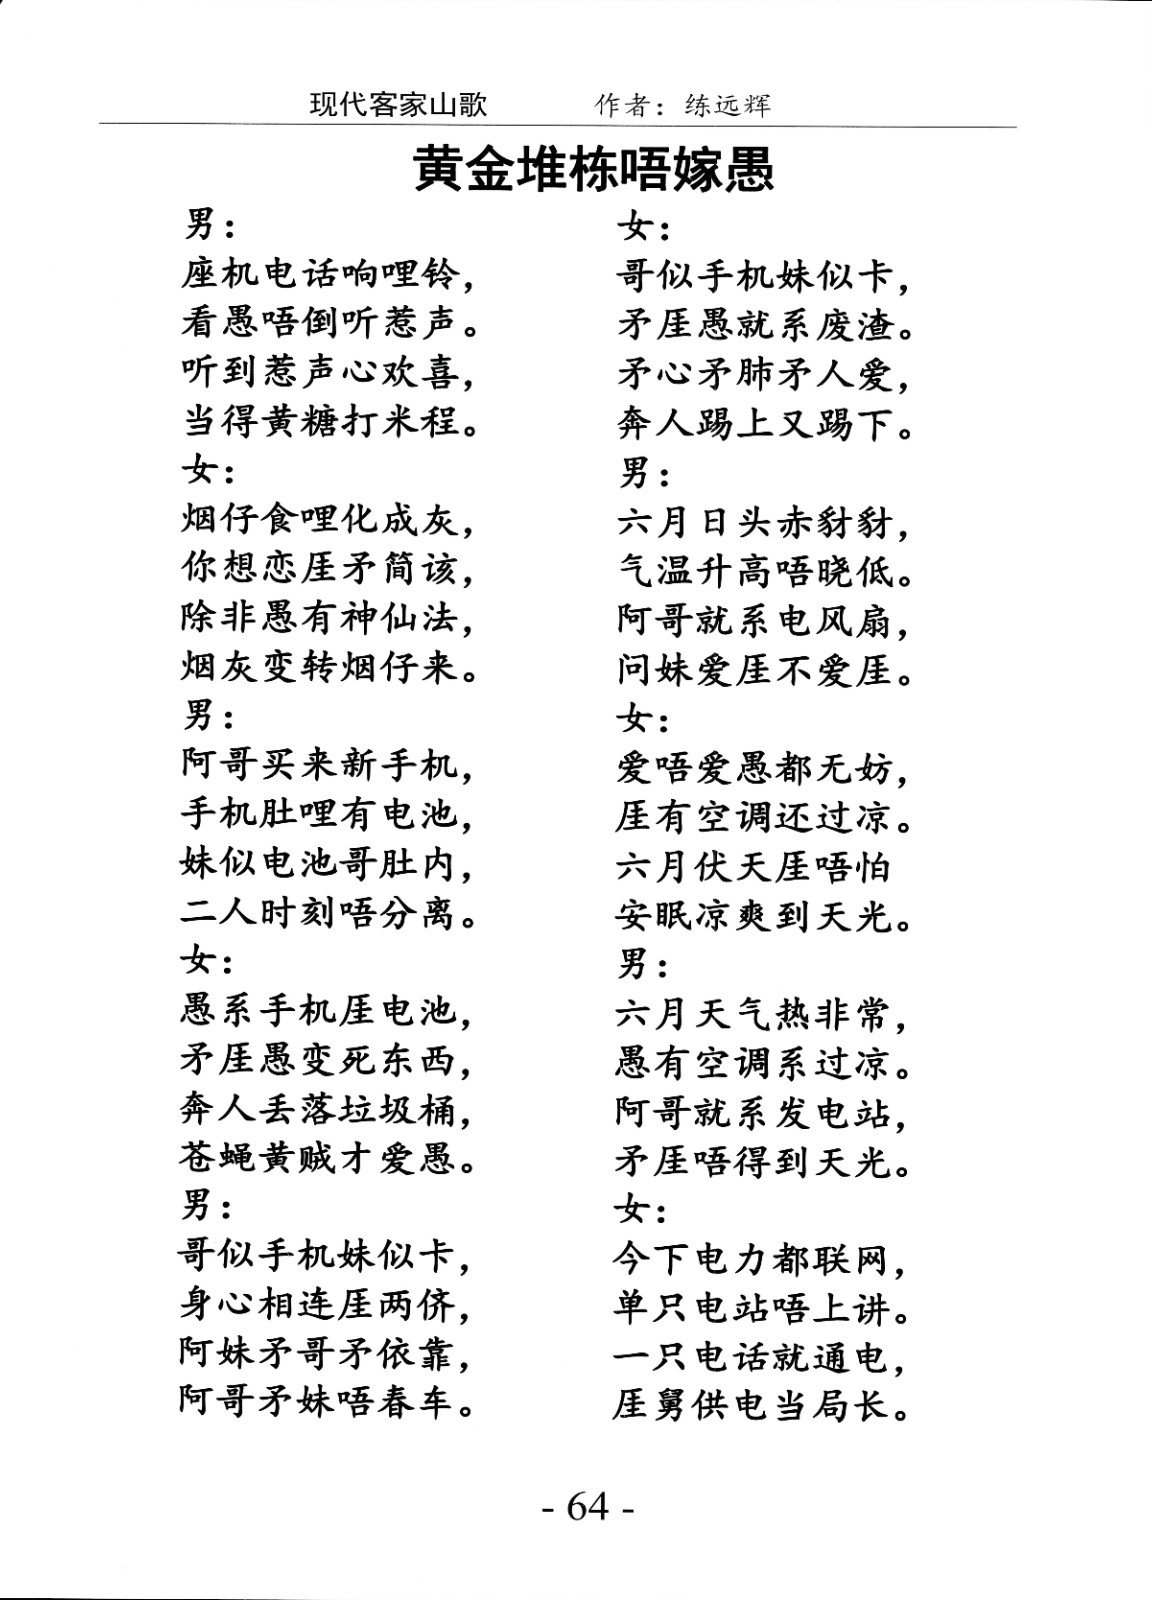 现代客家山歌 作者：练远辉
黄金堆栋唔嫁愚
男：
座机电话响哩铃，
看愚唔倒听惹声。
听到惹声心欢喜，
当得黄糖打米程。
女：
烟仔食哩化成灰，
你想恋厓矛简该，
除非愚有神仙法，
烟灰变转烟仔来。
男：
阿哥买来新手机，
手机肚哩有电池，
妹似电池哥肚内，
二人时刻唔分离。
女：
愚系手机厓电池，
矛厓愚变死东西，
奔人丢落垃圾桶，
苍蝇黄贼才爱愚。
男：
哥似手机妹似卡，
身心相连厓两侪，
阿妹矛哥矛依靠，
阿哥矛妹唔春车。
女：
哥似手机妹似卡，
矛厓愚就系废渣。
矛心矛肺矛人爱，
奔人踢上又踢下。
男：
六月日头赤豺豺，
气温升高唔晓低。
阿哥就系电风扇，
问妹爱厓不爱厓。
女：
爱唔爱愚都无妨，
厓有空调还过凉。
六月伏天厓唔怕
安眠凉爽到天光。
男：
六月天气热非常，
愚有空调系过凉。
阿哥就系发电站，
矛厓唔得到天光。
女：
今下电力都联网，
单只电站唔上讲。
一只电话就通电，
厓舅供电当局长。
- 64 -